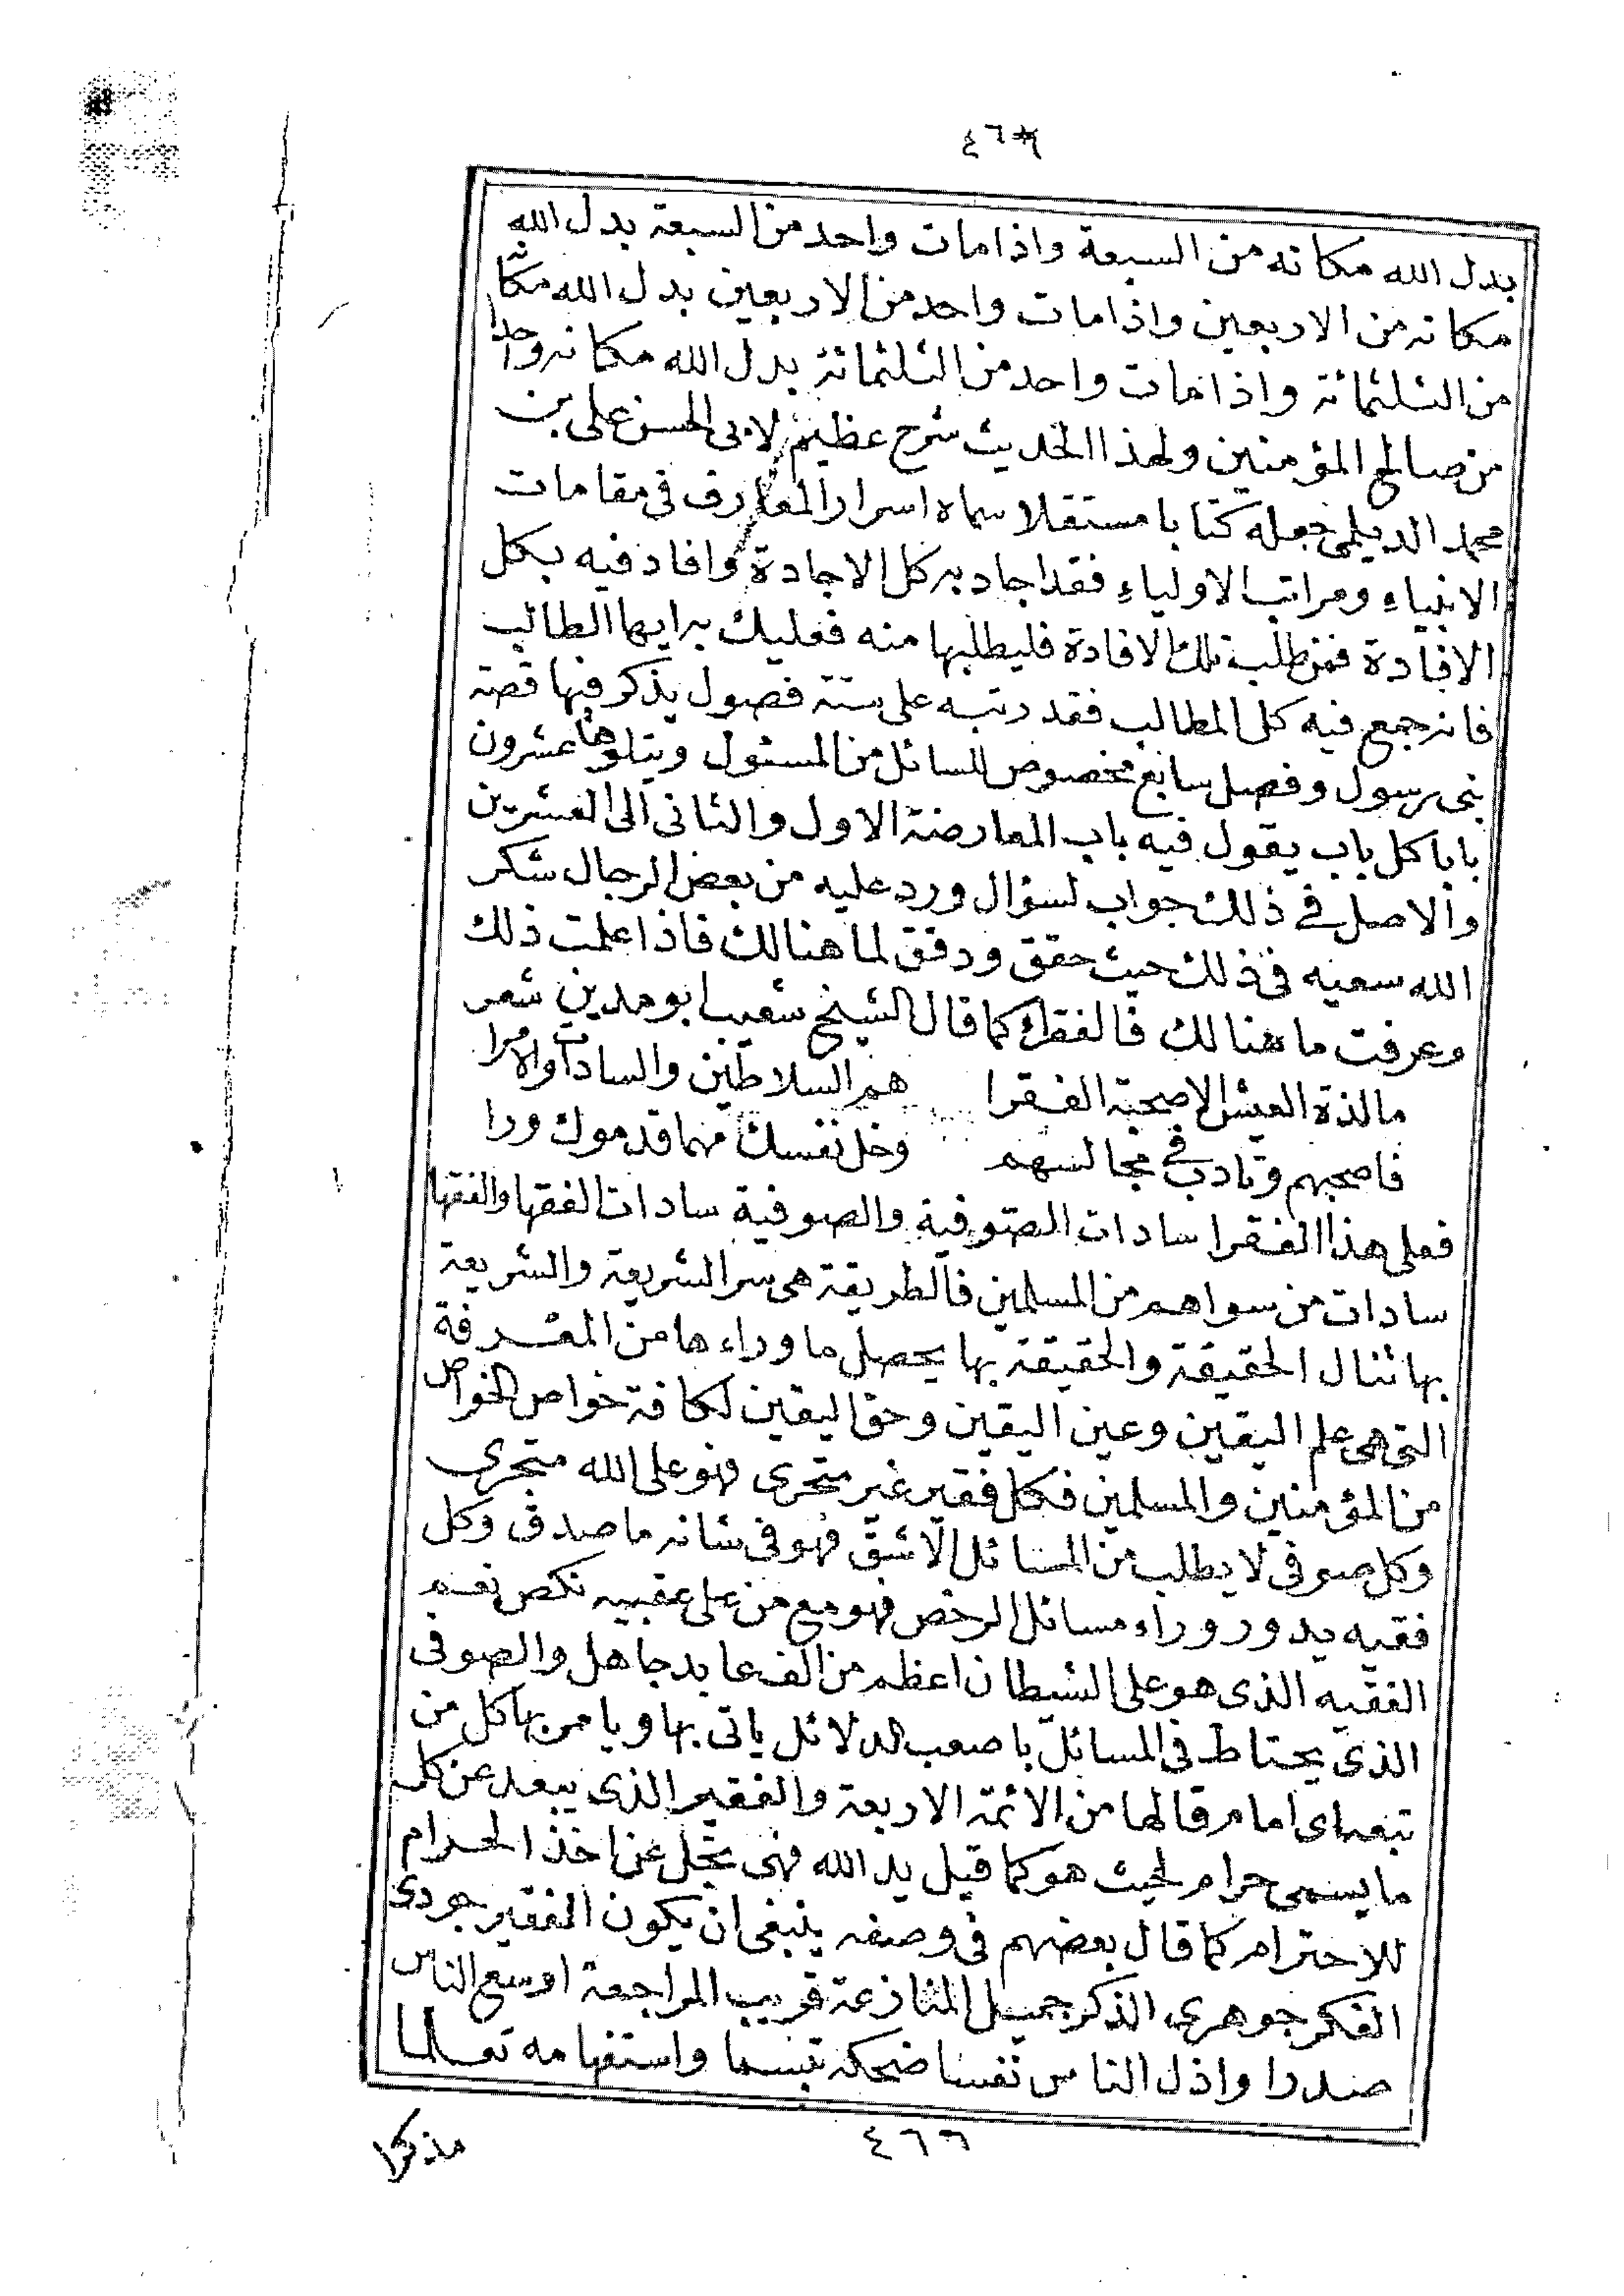 ٤٦٩
بدل الله مكانه من السبعة واذامات واحد من السبعة بدل الله
مكانه من الاربعين واذامات واحد من الاربعين بدل الله مكانه
من الثلثمائة واذامات واحد من الثلثمائة بدل الله مكانه واحدا
من صالح المؤمنين ولهذا الحديث شرح عظيم لابى الحسن على بن
محمد الديلمى جعله كتابا مستقلا سماه اسرار المعارف فى مقامات
الانبياء ومراتب الاولياء فقد اجاد به كل الاجادة وافاد فيه بكل
الافادة فمن طلب تلك الافادة فليطلبها منه فعليك به ايها الطالب
فانه جمع فيه كل المطالب فقد رتبه على ستة فصول يذكر فيها قصة
نبى رسول وفصل سابع مخصوص للسائل من المسئول ويتلوها عشرون
بابا كل باب يقول فيه باب المعارضة الاول والثانى الى العشرين
والاصل فى ذلك جواب لسؤال ورد عليه من بعض الرجال شكر
الله سعيه فى ذلك حيث حقق ودقق لما هنالك فاذا علمت ذلك
وعرفت ما هنالك فالفقراء كما قال الشيخ شعيب ابو مدين شعر
مالذة العيش الا صحبة الفقرا هم السلاطين والسادات والامرا
فاصحبهم وتادب فى مجالسهم وخل نفسك مهما قدموك ورا
فعلى هذا الفقرا سادات الصوفية والصوفية سادات الفقها والفقها
سادات من سواهم من المسلمين فالطريقة هى سر الشريعة والشريعة
بها تنال الحقيقة والحقيقة بها يحصل ما وراءها من المعرفة
التى هى علم اليقين وعين اليقين وحق اليقين لكافة خواص الخواص
من المؤمنين والمسلمين فكل فقير غير متحرى فهو على الله متجرى
وكل صوفى لا يطلب من المسائل الاشق فهو فى شانه ما صدق وكل
فقيه يدور وراء مسائل الرخص فهو مع من على عقبيه نكص نعم
الفقيه الذى هو على الشيطان اعظم من الف عابد جاهل والصوفى
الذى يحتاط فى المسائل باصعب الدلائل ياتى بها ويامر بها كل من
تبعه اى امام قالها من الائمة الاربعة والفقير الذى يبعد عن كل
ما يسمى حرام لحيث هو كما قيل يد الله فهى تجل عن اخذ الحرام
للاحترام كما قال بعضهم فى وصفه ينبغى ان يكون الفقير جودى
الفكر جوهرى الذكر جميل المنازعة قريب المراجعة اوسع الناس
صدرا واذل الناس نفسا ضحكه تبسما واستفهامه تعلما
مذكرا
٤٦٦